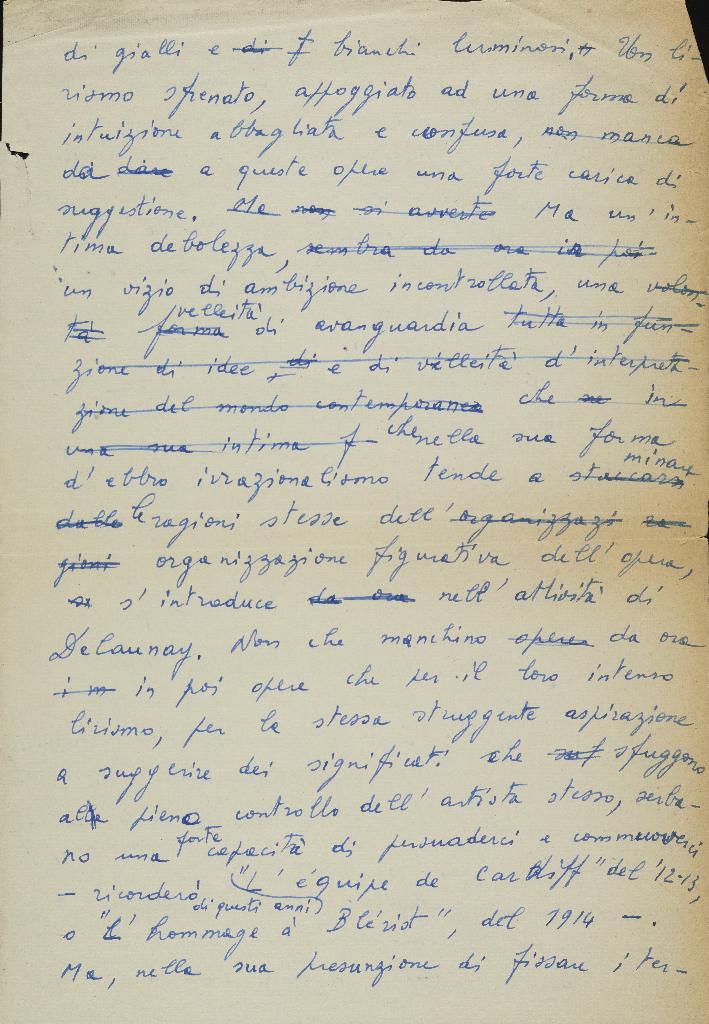 di gialli e di f bianchi luminosi. Un li-
rismo sfrenato, appoggiato ad una forma di
intuizione abbagliata e confusa, non manca
da dare a queste opere una forte carica di
suggestione. Ma non si avverte Ma un'in-
tima debolezza, sembra da ora in poi
un vizio di ambizione incontrollata, una volon-
tà forma velleità di avanguardia tutta in fun-
zione di idee di e di velleità d'interpreta-
zione del mondo contemporaneo che se in
una sua intima f che nella sua forma
d'ebbro irrazionalismo tende a staccarsi minare
dalle le ragioni stesse dell'organizzazi ra-
gioni organizzazione figurativa dell'opera,
si s'introduce da ora nell'attività di
Delaunay. Non che manchino opere da ora
in in poi opere che per il loro intenso
lirismo, per la stessa struggente aspirazione
a suggerire dei significati che suf sfuggono
al pieno controllo dell'artista stesso, serba-
no una forte capacità di persuaderci e commuoverci
- ricorderò "L'équipe de Cardiff" del '12-13,
di questi anni
o "L'hommage à Blériot", del 1914 -.
Ma, nella sua presunzione di fissare i ter-